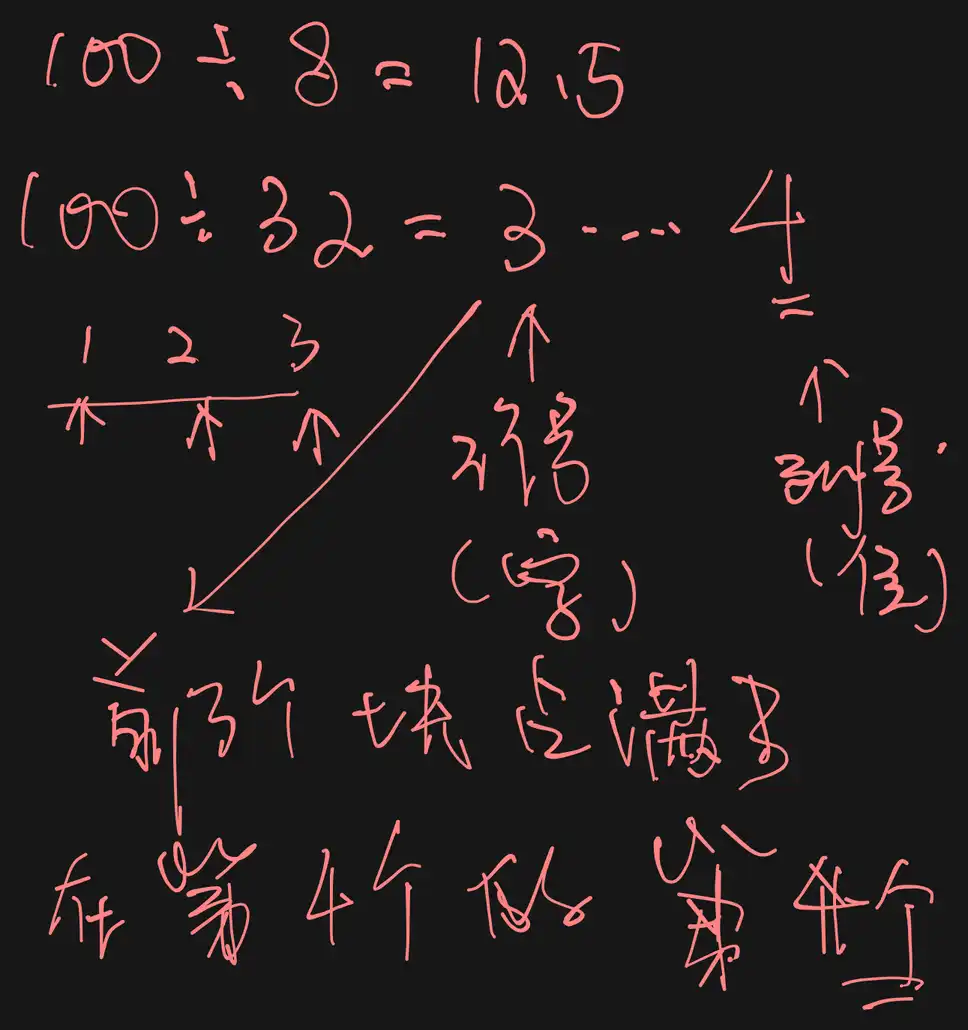 100 ÷ 8 = 12.5
100 ÷ 32 = 3 ... 4
1 2 3
行号
列号
(字)
(位)
前3个块占满了
在第4个的第4个